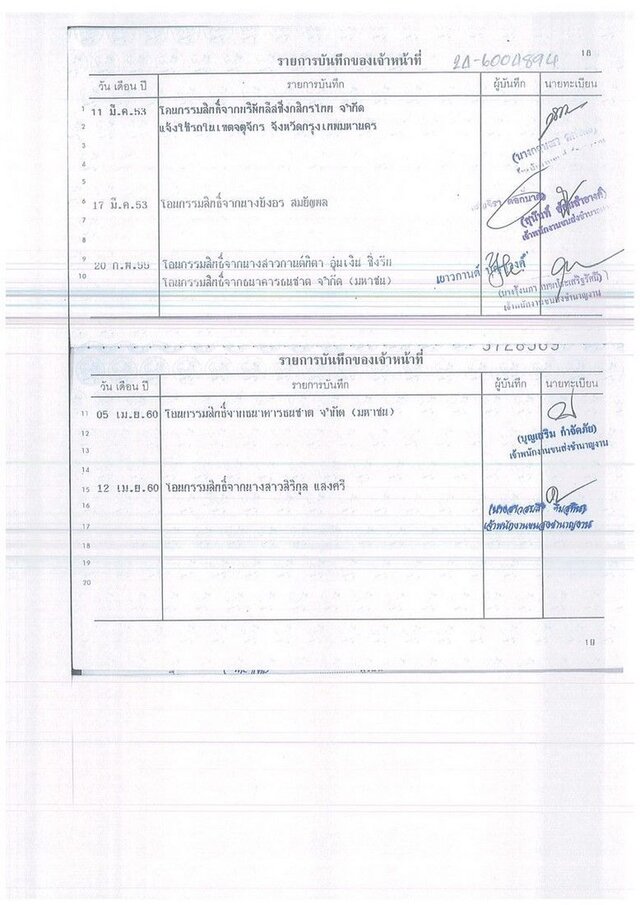 18
รายการบันทึกของเจ้าหน้าที่
วัน เดือน ปี รายการบันทึก ผู้บันทึก นายทะเบียน
1 11 มี.ค.53 โอนกรรมสิทธิ์จากบริษัทลีสซิ่งกสิกรไทย จำกัด
2 แจ้งใช้รถในเขตจตุจักร จังหวัดกรุงเทพมหานคร
3
4
5
6 17 มี.ค.53 โอนกรรมสิทธิ์จากนางยิ่งอร สมยัญผล
7
8
9 20 ก.พ.55 โอนกรรมสิทธิ์จากนางสาวกานต์ทิตา อุ่นเงิน ซิ่งรัก
10 โอนกรรมสิทธิ์จากธนาคารธนชาต จำกัด (มหาชน)
เยาวกานต์
3728569
รายการบันทึกของเจ้าหน้าที่
วัน เดือน ปี รายการบันทึก ผู้บันทึก นายทะเบียน
11 05 เม.ย.60 โอนกรรมสิทธิ์จากธนาคารธนชาต จำกัด (มหาชน)
12
(บุญเสริม กำจัดภัย)
13
เจ้าพนักงานขนส่งชำนาญงาน
14
15 12 เม.ย.60 โอนกรรมสิทธิ์จากนางสาวสิริกุล แสงศรี
16
17
เจ้าพนักงานขนส่งชำนาญงาน
18
19
20
19